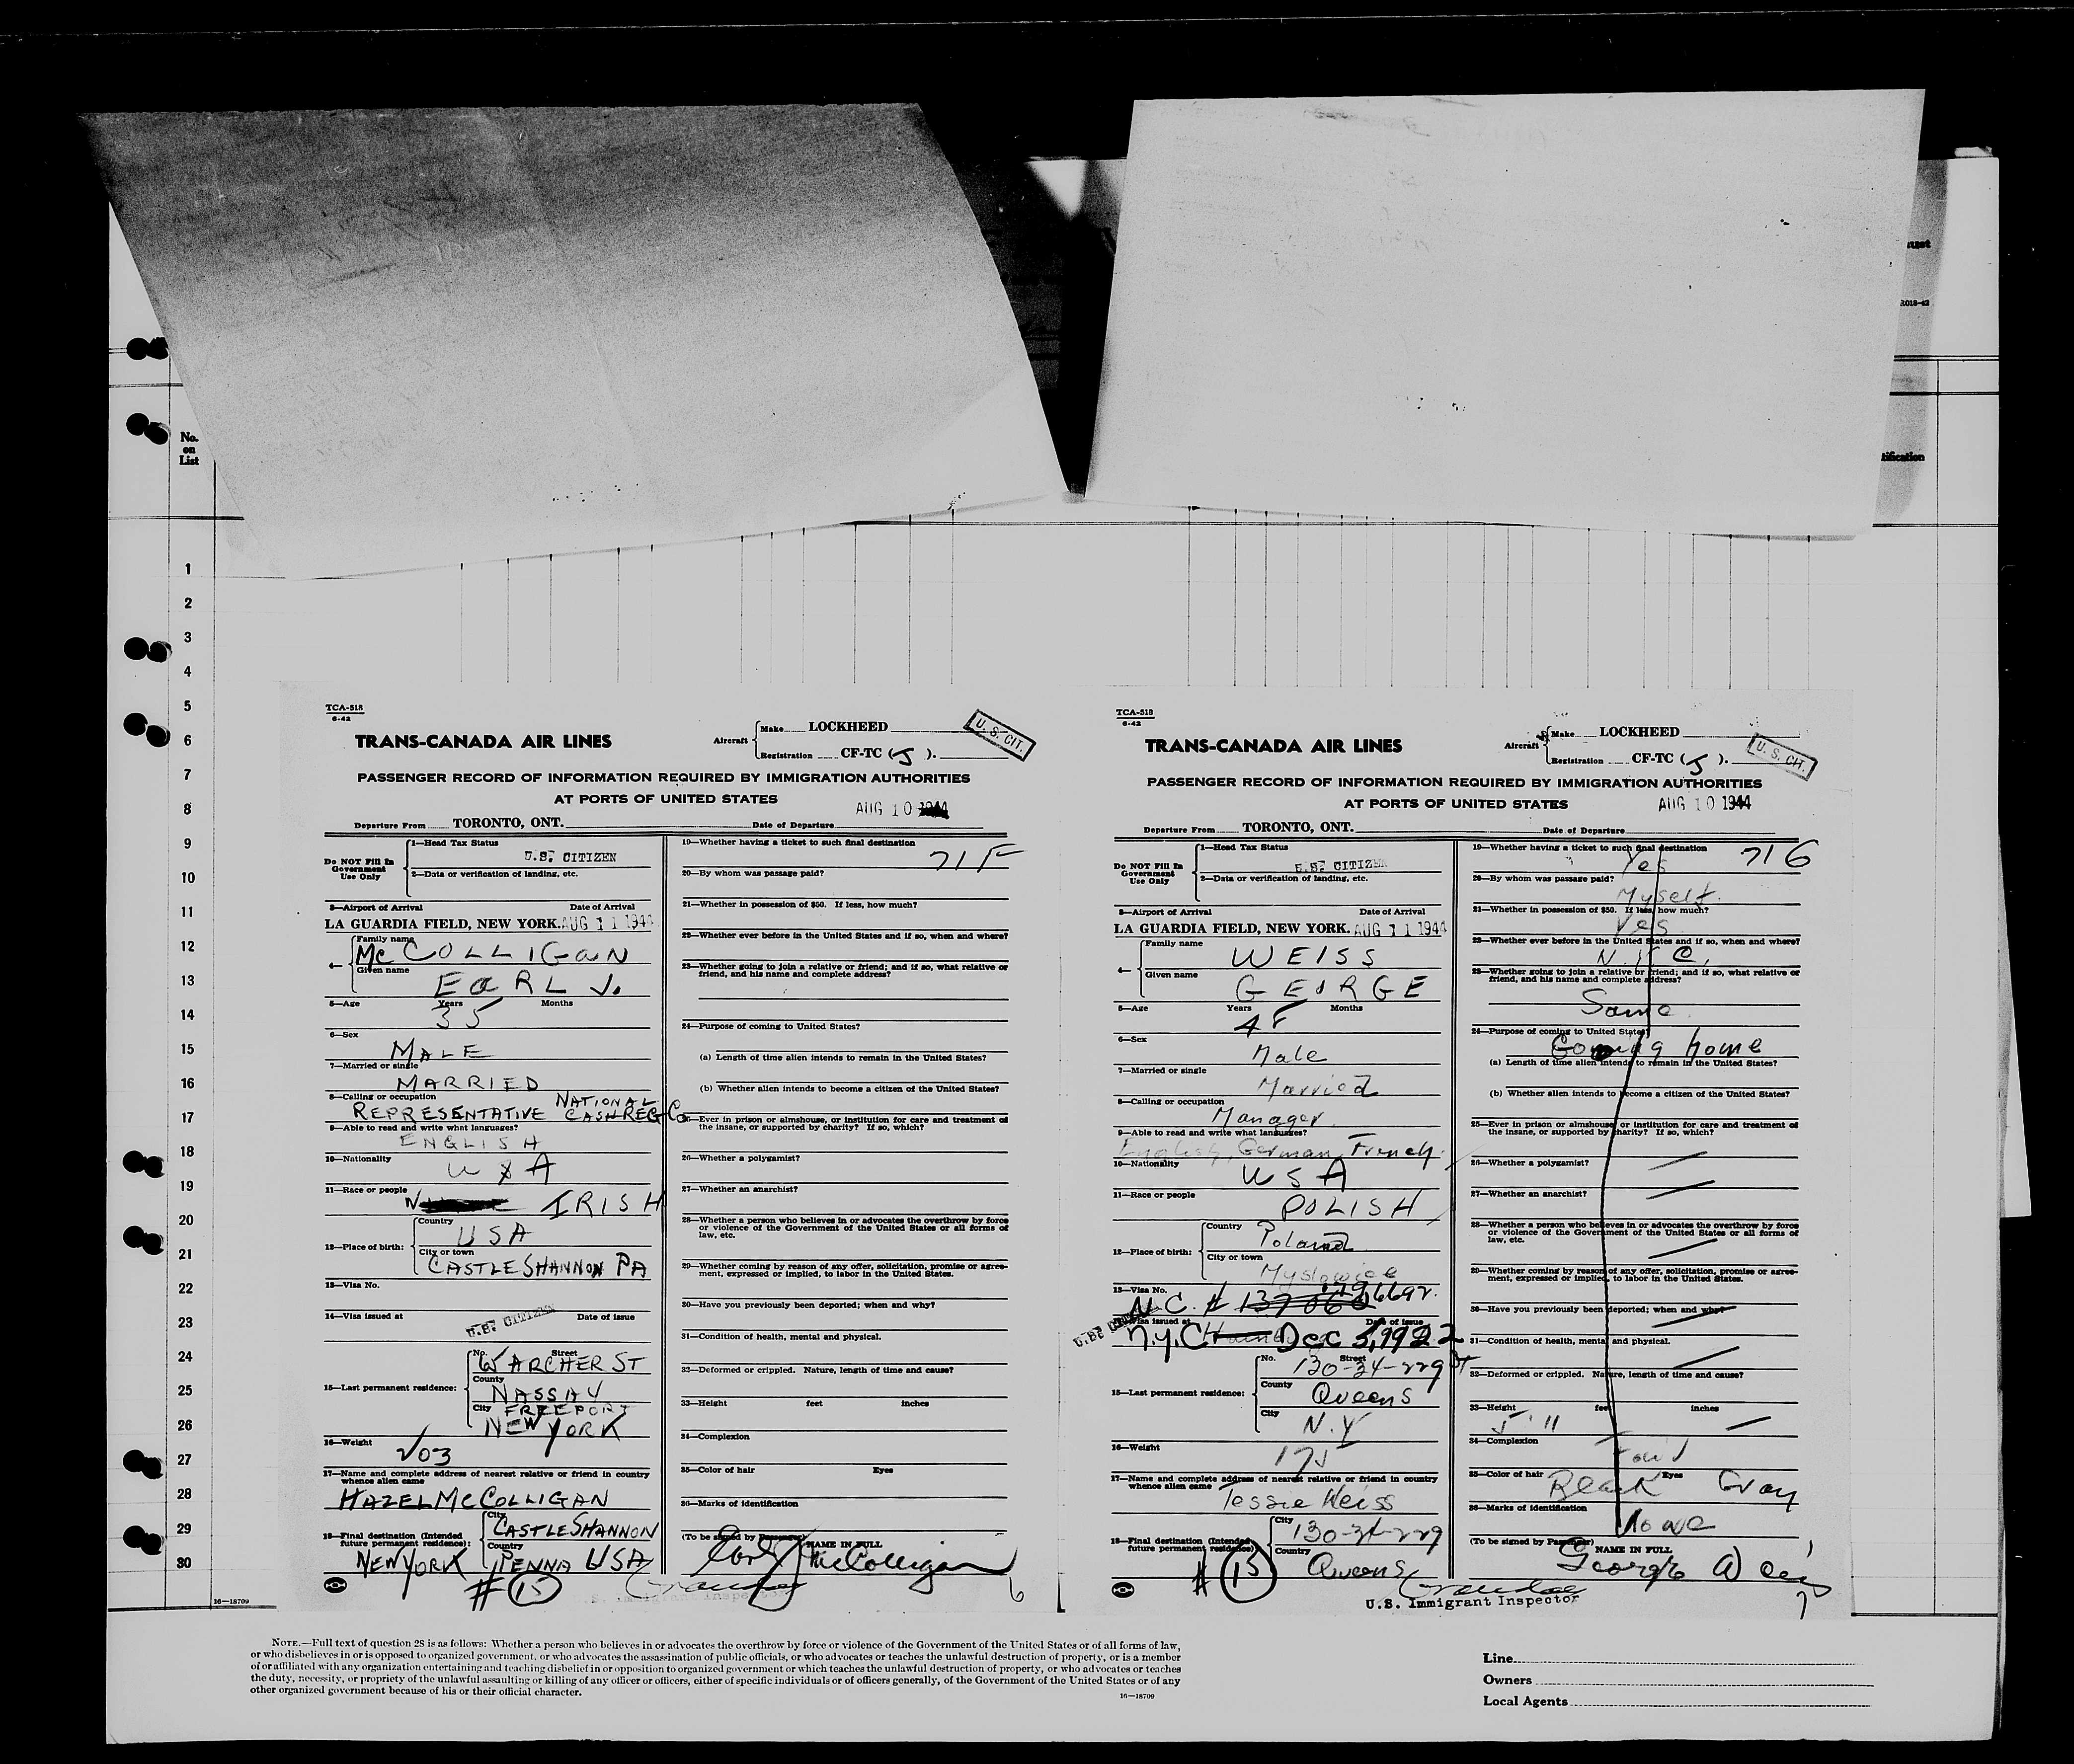 No.
on
List
1
2
3
4
5
6
7
8
9
10
11
12
13
14
15
16
17
18
19
20
21
22
23
24
25
26
27
28
29
30
16—18709
2018-42
TCA-518
6-42
TRANS-CANADA AIR LINES
Aircraft
Make LOCKHEED
Registration CF-TC (J).
U. S. CIT.
PASSENGER RECORD OF INFORMATION REQUIRED BY IMMIGRATION AUTHORITIES
AT PORTS OF UNITED STATES
AUG 10 1944
Departure From TORONTO, ONT. Date of Departure
Do NOT Fill In
Government
Use Only
1—Head Tax Status
U.S. CITIZEN
2—Data or verification of landing, etc.
3—Airport of Arrival Date of Arrival
LA GUARDIA FIELD, NEW YORK. AUG 11 1944
4—
Family name
McCOLLIGAN
Given name
EARL J.
5—Age Years Months
35
6—Sex
MALE
7—Married or single
MARRIED
8—Calling or occupation
REPRESENTATIVE NATIONAL CASH REG Co
9—Able to read and write what languages?
ENGLISH
10—Nationality
USA
11—Race or people
IRISH
12—Place of birth:
Country
USA
City or town
CASTLE SHANNON PA
13—Visa No.
14—Visa issued at Date of issue
U.S. CITIZEN
15—Last permanent residence:
No. Street
W ARCHER ST
County
NASSAU
City FREEPORT
NEW YORK
16—Weight
203
17—Name and complete address of nearest relative or friend in country
whence alien came
HAZEL McCOLLIGAN
18—Final destination (Intended
future permanent residence):
City
CASTLE SHANNON
Country
NEW YORK PENNA USA
# 15
19—Whether having a ticket to such final destination
71F
20—By whom was passage paid?
21—Whether in possession of $50. If less, how much?
22—Whether ever before in the United States and if so, when and where?
23—Whether going to join a relative or friend; and if so, what relative or
friend, and his name and complete address?
24—Purpose of coming to United States?
(a) Length of time alien intends to remain in the United States?
(b) Whether alien intends to become a citizen of the United States?
25—Ever in prison or almshouse, or institution for care and treatment of
the insane, or supported by charity? If so, which?
26—Whether a polygamist?
27—Whether an anarchist?
28—Whether a person who believes in or advocates the overthrow by force
or violence of the Government of the United States or all forms of
law, etc.
29—Whether coming by reason of any offer, solicitation, promise or agree-
ment, expressed or implied, to labor in the United States.
30—Have you previously been deported; when and why?
31—Condition of health, mental and physical.
32—Deformed or crippled. Nature, length of time and cause?
33—Height feet inches
34—Complexion
35—Color of hair Eyes
36—Marks of identification
(To be signed by Passenger)
NAME IN FULL
Earl J McColligan
U.S. Immigrant Inspector
6
TCA-518
6-42
TRANS-CANADA AIR LINES
Aircraft
Make LOCKHEED
Registration CF-TC (J).
U. S. CIT.
PASSENGER RECORD OF INFORMATION REQUIRED BY IMMIGRATION AUTHORITIES
AT PORTS OF UNITED STATES
AUG 10 1944
Departure From TORONTO, ONT. Date of Departure
Do NOT Fill In
Government
Use Only
1—Head Tax Status
U.S. CITIZEN
2—Data or verification of landing, etc.
3—Airport of Arrival Date of Arrival
LA GUARDIA FIELD, NEW YORK. AUG 11 1944
4—
Family name
WEISS
Given name
GEORGE
5—Age Years Months
48
6—Sex
Male
7—Married or single
Married
8—Calling or occupation
Manager
9—Able to read and write what languages?
English, German, French.
10—Nationality
USA
11—Race or people
POLISH
12—Place of birth:
Country
Poland
City or town
Myslowice
13—Visa No.
N.C. #
Visa issued at Date of issue
U.S.
N.Y.C Dec
15—Last permanent residence:
No. Street
130-34-229 St
County
Queens
City
N.Y
16—Weight
175
17—Name and complete address of nearest relative or friend in country
whence alien came
Tessie Weiss
18—Final destination (Intended
future permanent residence):
City
130-34-229
Country
Queens
# 15
19—Whether having a ticket to such final destination
Yes
71G
20—By whom was passage paid?
Myself.
21—Whether in possession of $50. If less, how much?
Yes
22—Whether ever before in the United States and if so, when and where?
N.Y.C.
23—Whether going to join a relative or friend; and if so, what relative or
friend, and his name and complete address?
Same
24—Purpose of coming to United States?
Going home
(a) Length of time alien intends to remain in the United States?
(b) Whether alien intends to become a citizen of the United States?
25—Ever in prison or almshouse, or institution for care and treatment of
the insane, or supported by charity? If so, which?
26—Whether a polygamist?
27—Whether an anarchist?
28—Whether a person who believes in or advocates the overthrow by force
or violence of the Government of the United States or all forms of
law, etc.
29—Whether coming by reason of any offer, solicitation, promise or agree-
ment, expressed or implied, to labor in the United States.
30—Have you previously been deported; when and why?
31—Condition of health, mental and physical.
32—Deformed or crippled. Nature, length of time and cause?
33—Height feet inches
5'11
34—Complexion
35—Color of hair Black Eyes Gray
36—Marks of identification
None
(To be signed by Passenger)
NAME IN FULL
George Weiss
U.S. Immigrant Inspector
7
NOTE.—Full text of question 28 is as follows: Whether a person who believes in or advocates the overthrow by force or violence of the Government of the United States or of all forms of law,
or who disbelieves in or is opposed to organized government, or who advocates the assassination of public officials, or who advocates or teaches the unlawful destruction of property, or is a member
of or affiliated with any organization entertaining and teaching disbelief in or opposition to organized government or which teaches the unlawful destruction of property, or who advocates or teaches
the duty, necessity, or propriety of the unlawful assaulting or killing of any officer or officers, either of specific individuals or of officers generally, of the Government of the United States or of any
other organized government because of his or their official character.
16—18709
Line
Owners
Local Agents